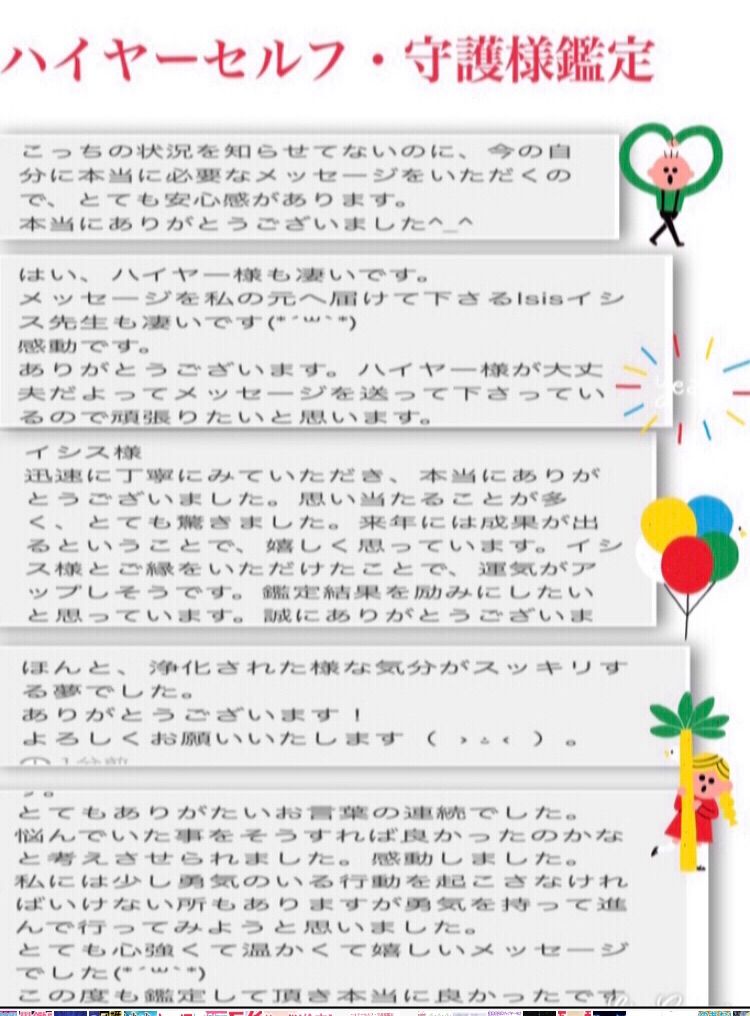 ハイヤーセルフ・守護様鑑定
こっちの状況を知らせてないのに、今の自
分に本当に必要なメッセージをいただくの
で、とても安心感があります。
本当にありがとうございました^_^
はい、ハイヤー様も凄いです。
メッセージを私の元へ届けて下さるIsisイシ
ス先生も凄いです(*´ω`*)
感動です。
ありがとうございます。ハイヤー様が大丈
夫だよってメッセージを送って下さってい
るので頑張りたいと思います。
yea
イシス様
迅速に丁寧にみていただき、本当にありが
とうございました。思い当たることが多
く、とても驚きました。来年には成果が出
るということで、嬉しく思っています。イシ
ス様とご縁をいただけたことで、運気がア
ップしそうです。鑑定結果を励みにしたい
と思っています。誠にありがとうございま
ほんと、浄化された様な気分がスッキリす
る夢でした。
ありがとうございます！
よろしくお願いいたします（ › ÷ ‹ ）。
とてもありがたいお言葉の連続でした。
悩んでいた事をそうすれば良かったのかな
と考えさせられました。感動しました。
私には少し勇気のいる行動を起こさなけれ
ばいけない所もありますが勇気を持って進
んで行ってみようと思いました。
とても心強くて温かくて嬉しいメッセージ
でした(*´ω`*)
この度も鑑定して頂き本当に良かったです